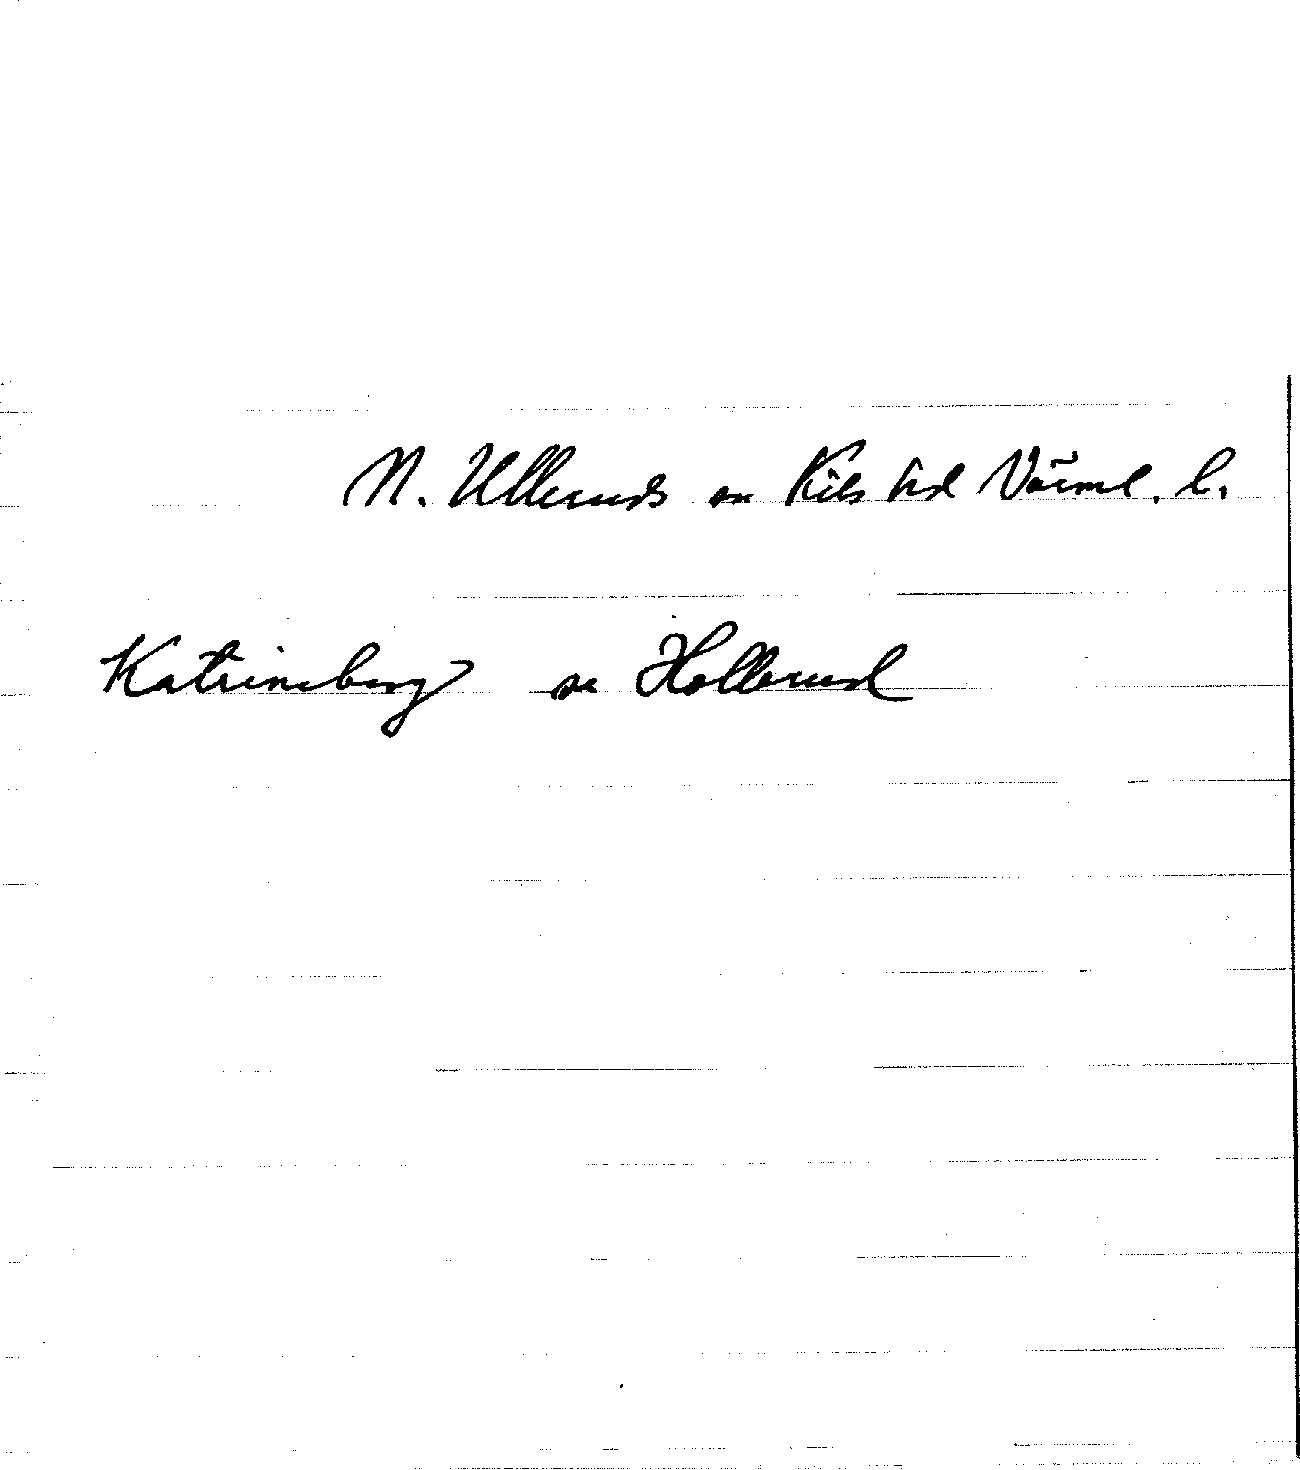 N. Ulleruds sn Kils hd Värml. l.
Katrineberg se Hollerud